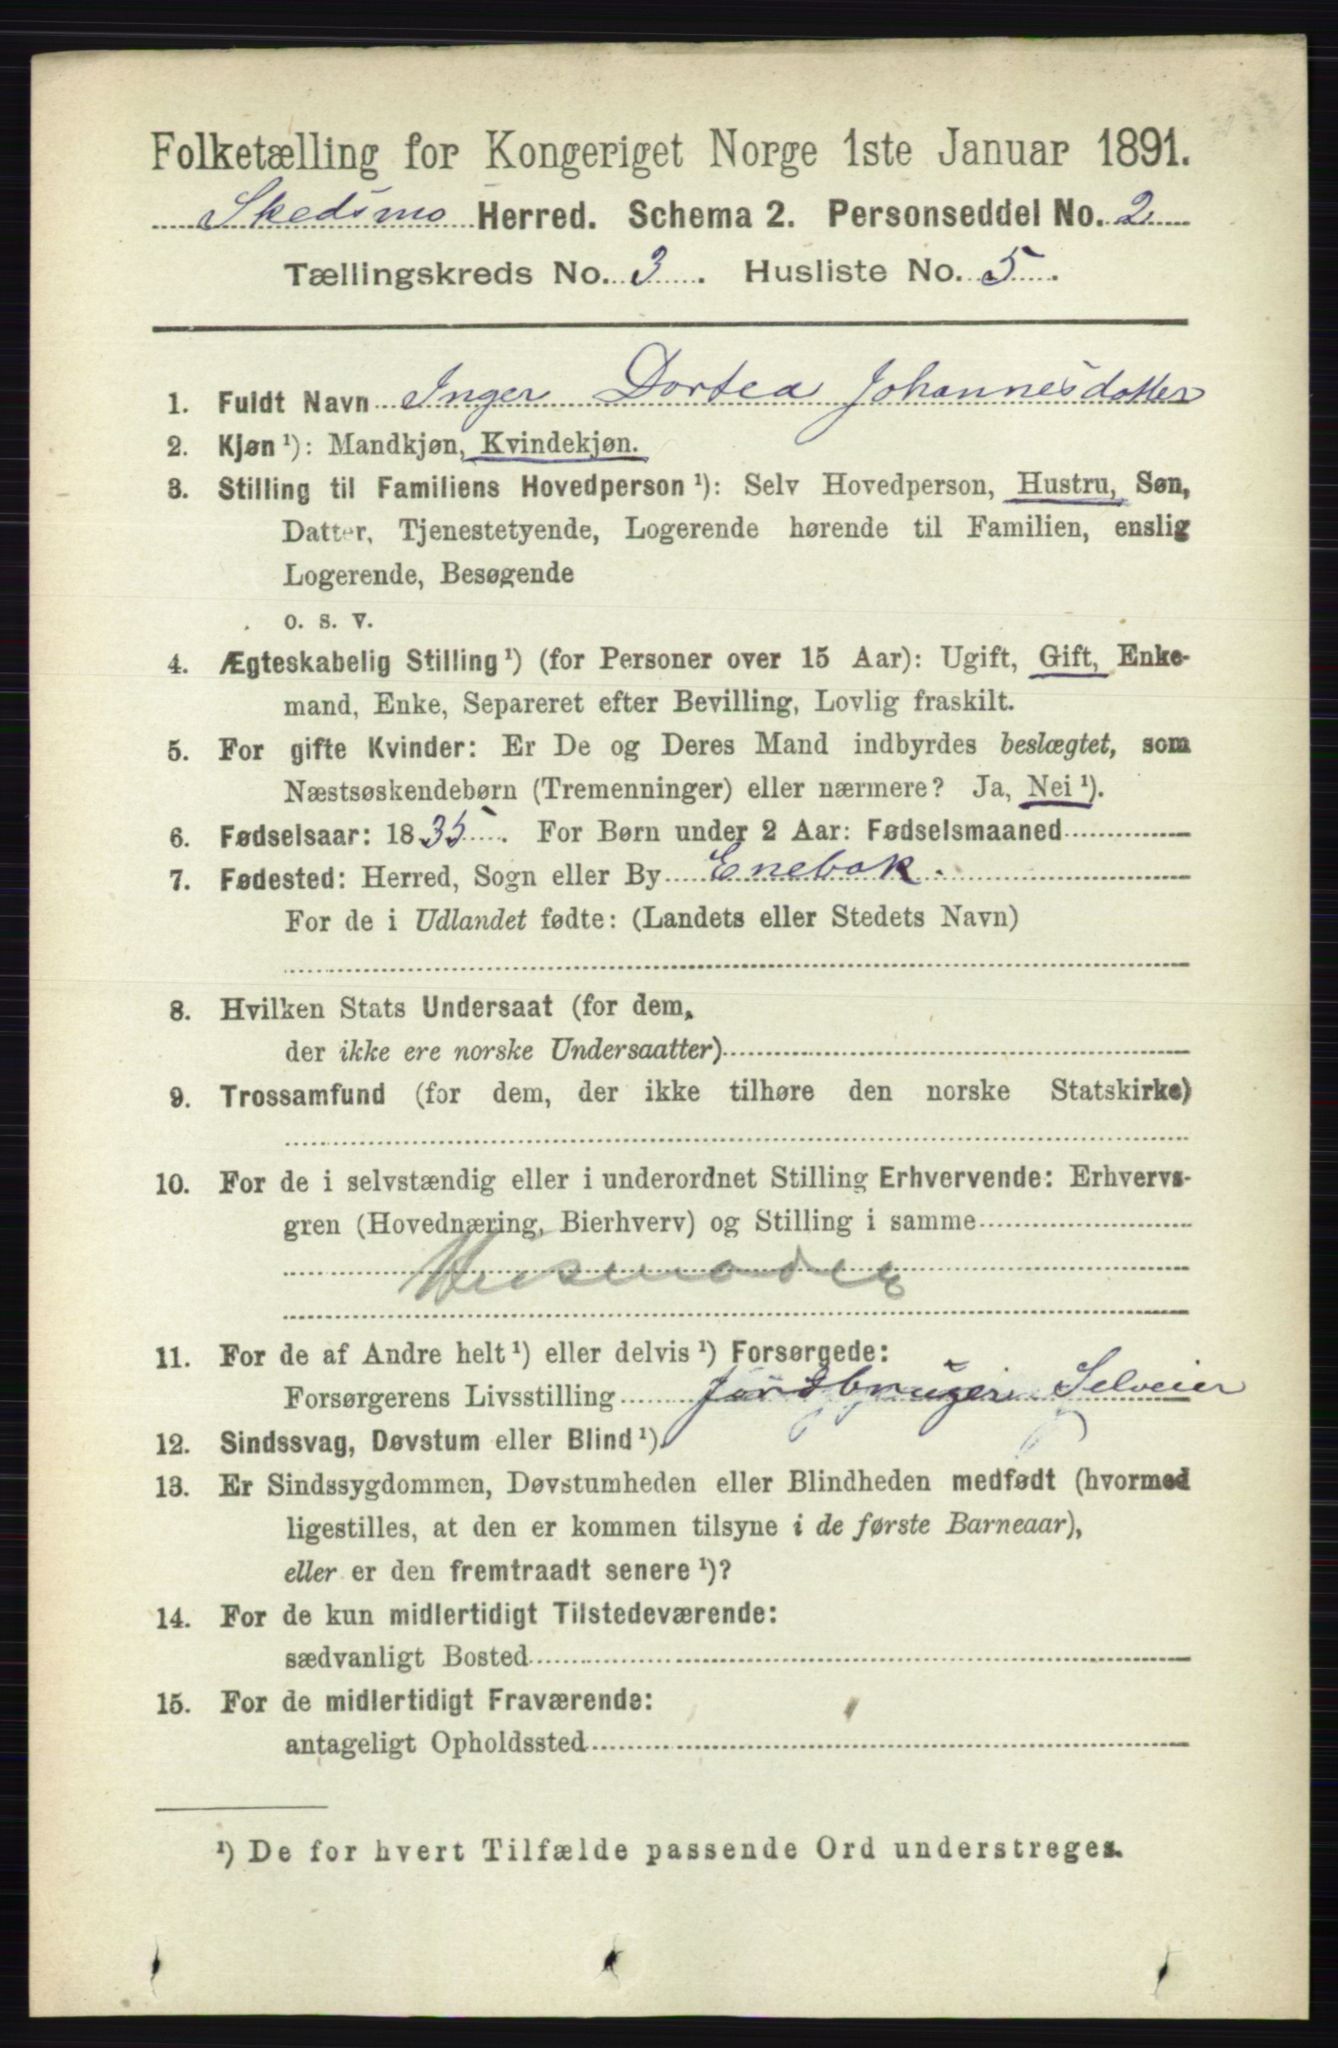 Folketælling for Kongeriget Norge 1ste Januar 1891.
Skedsmo Herred. Schema 2. Personseddel No. 2
Tællingskreds No. 3. Husliste No. 5.
1. Fuldt Navn Inger Dortea Johannesdatter
2. Kjøn ¹): Mandkjøn, Kvindekjøn.
3. Stilling til Familiens Hovedperson ¹): Selv Hovedperson, Hustru, Søn,
Datter, Tjenestetyende, Logerende hørende til Familien, enslig
Logerende, Besøgende
o. s. v.
4. Ægteskabelig Stilling ¹) (for Personer over 15 Aar): Ugift, Gift, Enke-
mand, Enke, Separeret efter Bevilling, Lovlig fraskilt.
5. For gifte Kvinder: Er De og Deres Mand indbyrdes beslægtet, som
Næstsøskendebørn (Tremenninger) eller nærmere? Ja, Nei ¹).
6. Fødselsaar: 1835. For Børn under 2 Aar: Fødselsmaaned
7. Fødested: Herred, Sogn eller By Enebak.
For de i Udlandet fødte: (Landets eller Stedets Navn)
8. Hvilken Stats Undersaat (for dem,
der ikke ere norske Undersaatter)
9. Trossamfund (for dem, der ikke tilhøre den norske Statskirke)
10. For de i selvstændig eller i underordnet Stilling Erhvervende: Erhvervs-
gren (Hovednæring, Bierhverv) og Stilling i samme
Husmoder
11. For de af Andre helt ¹) eller delvis ¹) Forsørgede:
Forsørgerens Livsstilling Jordbruger Selveier
12. Sindssvag, Døvstum eller Blind ¹).
13. Er Sindssygdommen, Døvstumheden eller Blindheden medfødt (hvormed
ligestilles, at den er kommen tilsyne i de første Barneaar),
eller er den fremtraadt senere ¹)?
14. For de kun midlertidigt Tilstedeværende:
sædvanligt Bosted
15. For de midlertidigt Fraværende:
antageligt Opholdssted
¹) De for hvert Tilfælde passende Ord understreges.